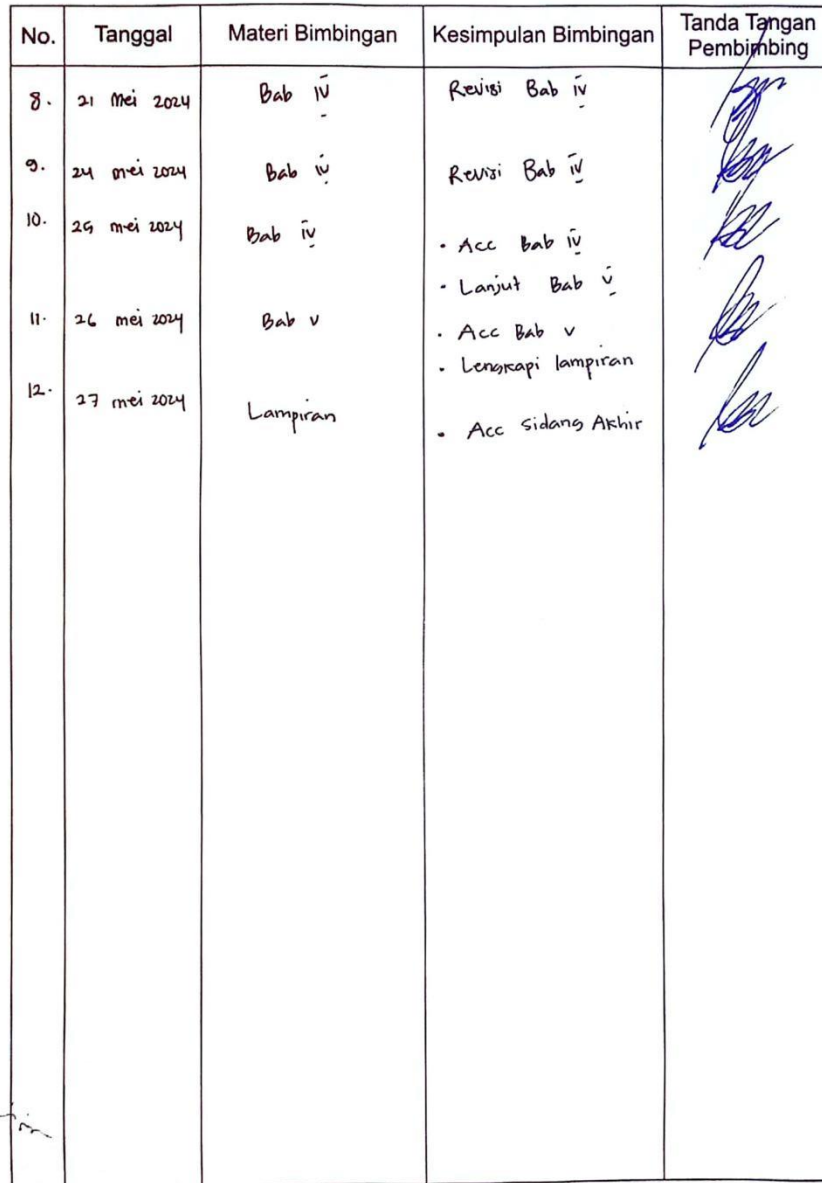 No. Tanggal Materi Bimbingan Kesimpulan Bimbingan Tanda Tangan Pembimbing
8. 21 Mei 2024 Bab IV Revisi Bab IV
9. 24 mei 2024 Bab IV Revisi Bab IV
10. 25 mei 2024 Bab IV • Acc Bab IV
• Lanjut Bab V
11. 26 mei 2024 Bab V • Acc Bab V
• Lengkapi lampiran
12. 27 mei 2024 Lampiran
• Acc Sidang Akhir